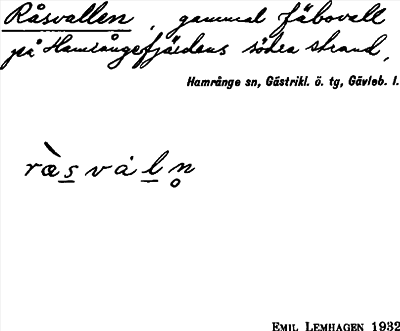 Råsvallen, gammal fäbovall
på Hamrångefjärdens södra strand,
Hamrånge sn, Gästrikl. ö. tg, Gävleb. l.
ræ̀svȧln̥
EMIL LEMHAGEN 1932